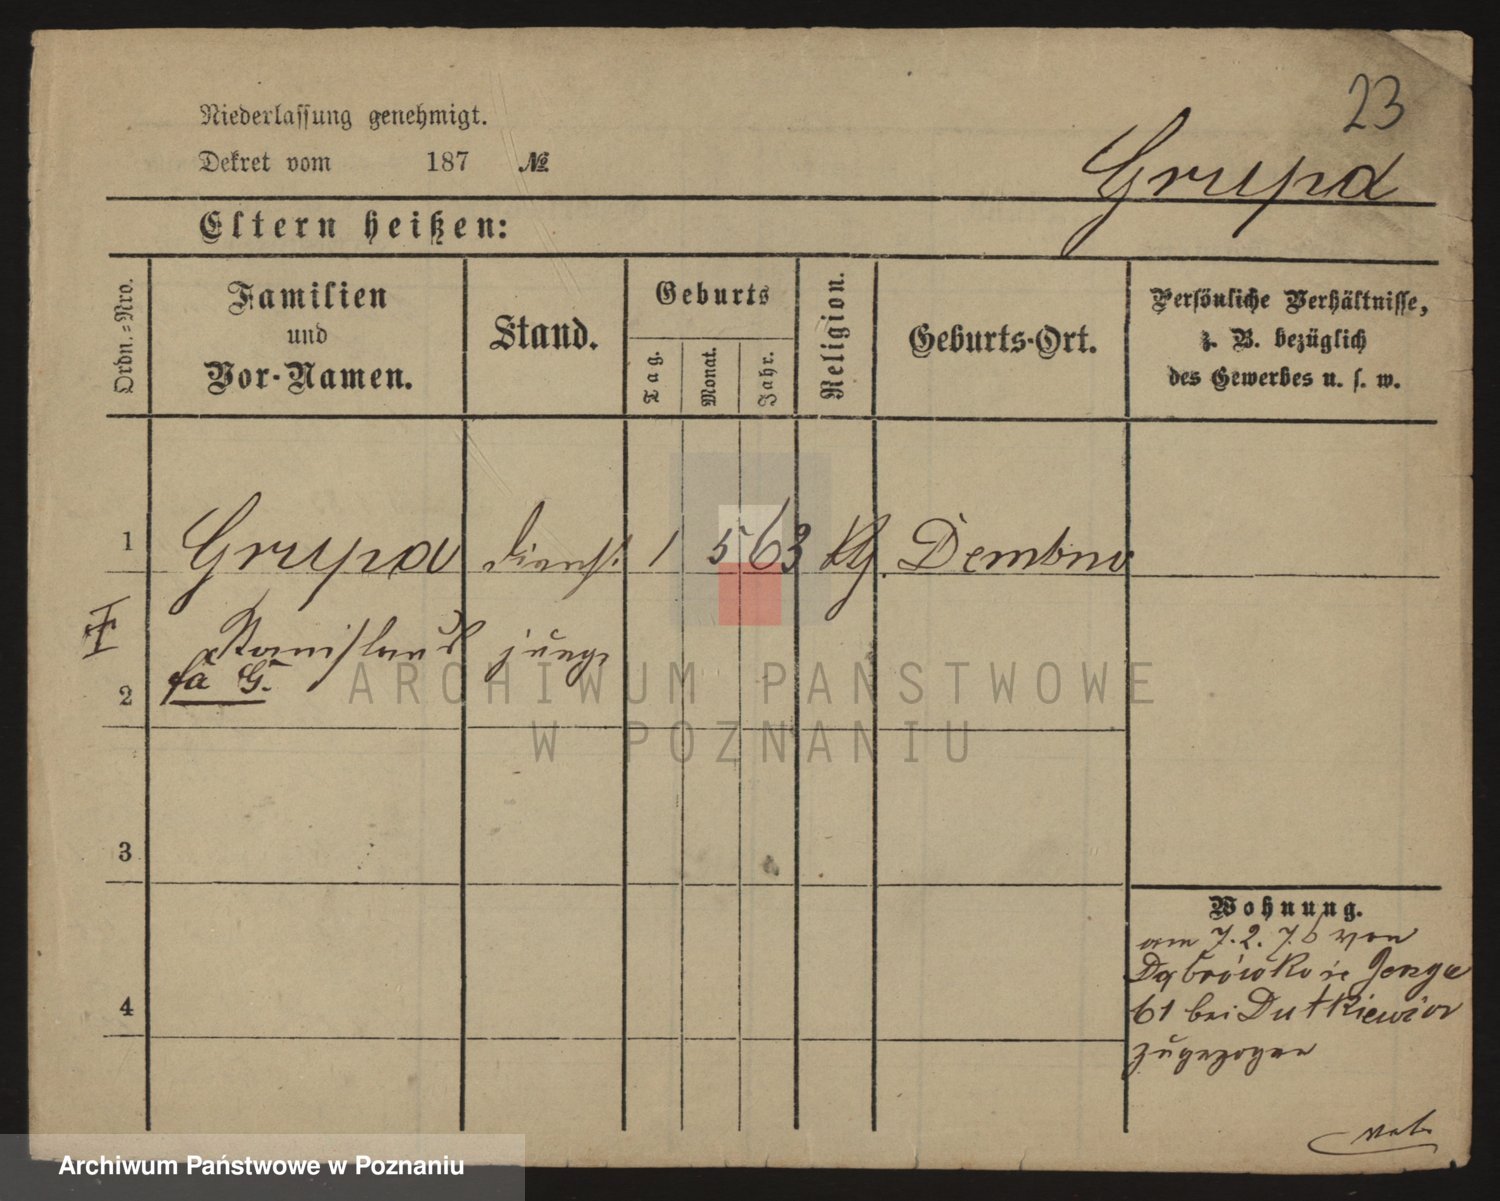 23
Niederlassung genehmigt.
Dekret vom 187 №
Grupa
Eltern heißen:
Ordn.=Nro.
Familien
und
Vor-Namen.
Stand.
Geburts
Tag.
Monat.
Jahr.
Religion.
Geburts-Ort.
Persönliche Verhältnisse,
z. B. bezüglich
des Gewerbes u. s. w.
1 Grupa Dienst 1 5 63 Kth. Dembno
Stanislaus junge
G.
2
3
4
Wohnung.
am 7. 2. 76 von
61 bei Dutkiewicz
zugezogen
ARCHIWUM PAŃSTWOWE
W POZNANIU
Archiwum Państwowe w Poznaniu